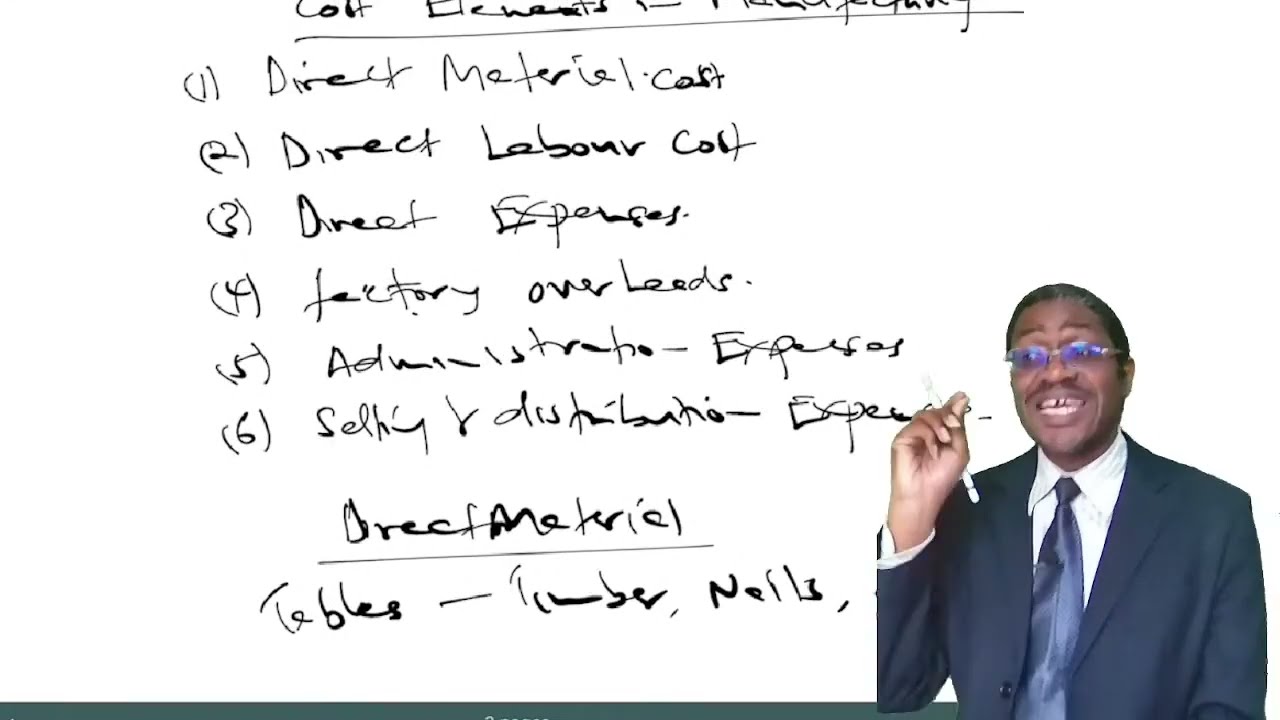 Cost Elements in Manufacturing
(1) Direct Material cost
(2) Direct Labour Cost
(3) Direct Expenses.
(4) factory overheads.
(5) Administration Expenses
(6) Selling & distribution Expenses
Direct Material
Tables — Timber, Nails,